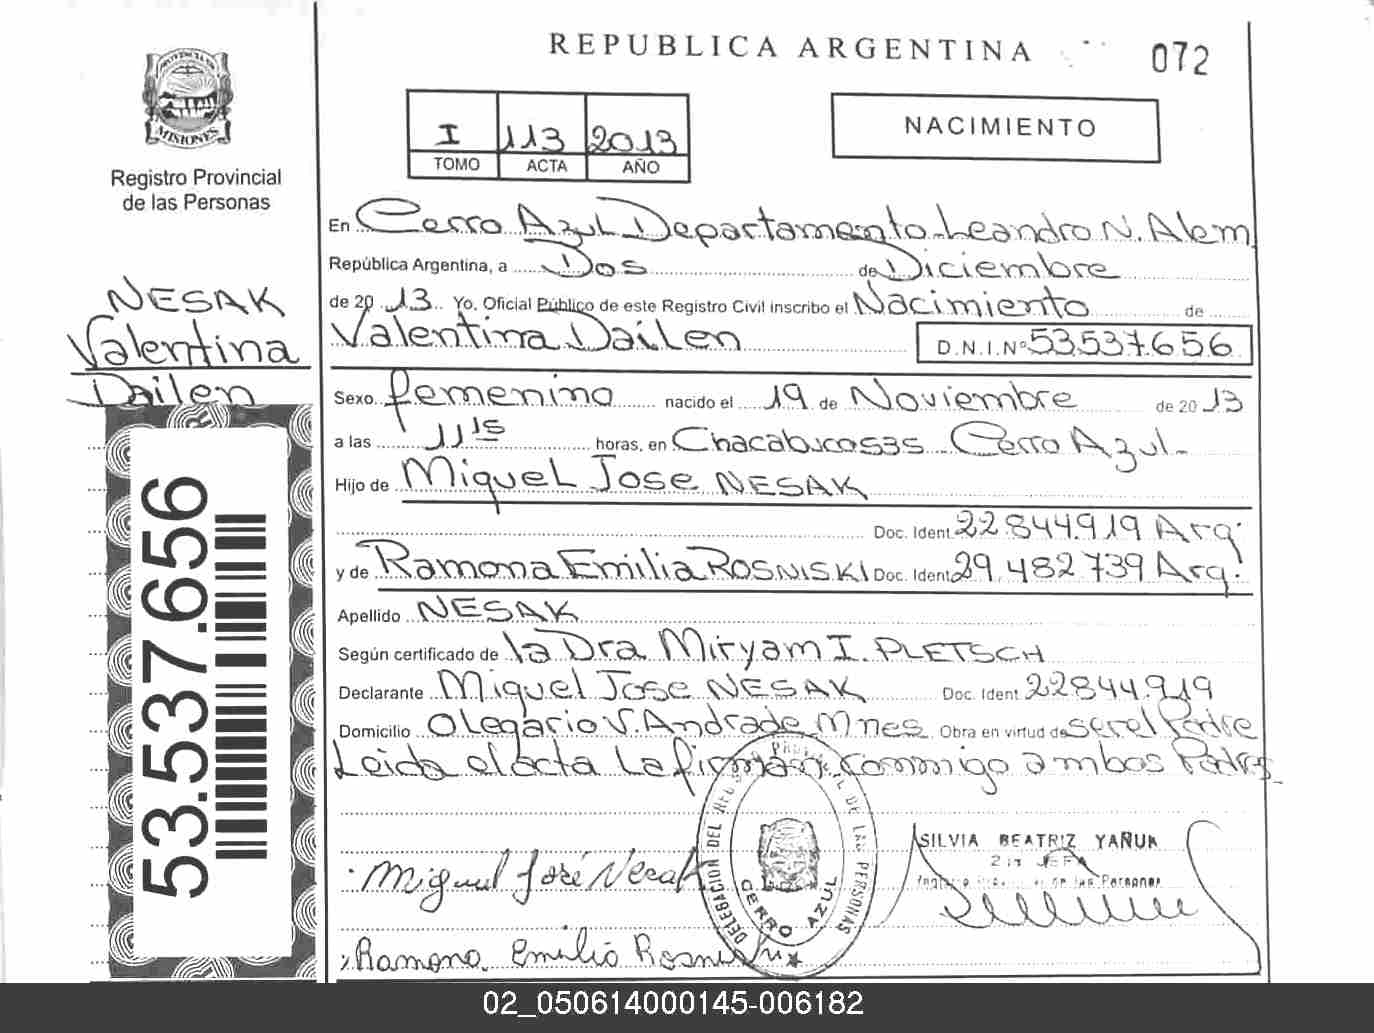 REPUBLICA ARGENTINA
072
MISIONES
Registro Provincial
de las Personas
I 113 2013
TOMO ACTA AÑO
NACIMIENTO
NESAK
Valentina
Dailen
53.537.656
En Cerro Azul Departamento Leandro N. Alem
República Argentina, a Dos de Diciembre
de 20 13 Yo, Oficial Público de este Registro Civil inscribo el Nacimiento de
Valentina Dailen D.N.I.Nº 53.537.656
Sexo femenino nacido el 19 de Noviembre de 20 13
a las 11 15 horas, en Chacabuco 535 Cerro Azul-
Hijo de Miguel Jose NESAK
Doc. Ident. 22.844.919 Arg.
y de Ramona Emilia ROSNISKI Doc. Ident. 29.482.739 Arg.
Apellido NESAK
Según certificado de la Dra Miryam I. PLETSCH
Declarante Miguel Jose NESAK Doc. Ident. 22844.919
Domicilio Olegario V. Andrade Mnes Obra en virtud de ser el Padre
Leida el acta la firman conmigo ambos Padres
DELEGACION DEL REGISTRO PROVINCIAL DE LAS PERSONAS
CERRO AZUL
SILVIA BEATRIZ YAÑUK
JEFA
de las Personas
Miguel José Nesak
Ramona Emilia Rosniski
02_050614000145-006182